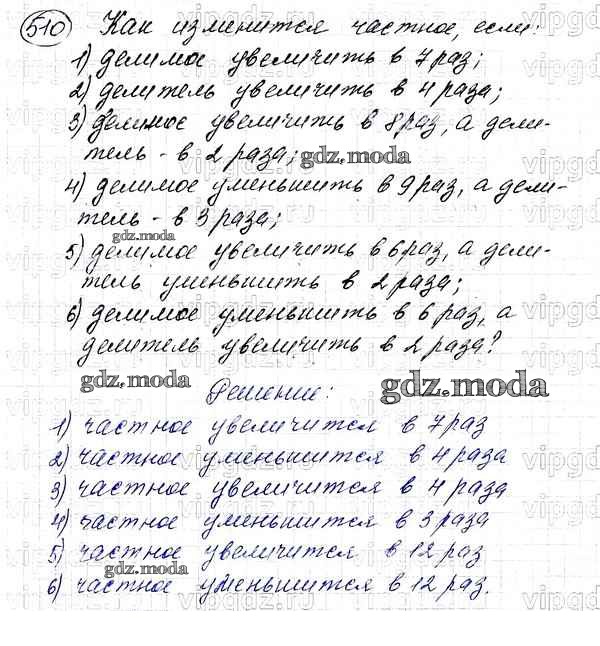 510 Как изменится частное, если:
1) делимое увеличить в 7 раз;
2) делитель увеличить в 4 раза;
3) делимое увеличить в 8 раз, а дели-
тель - в 2 раза; gdz.moda
4) делимое уменьшить в 9 раз, а дели-
тель - в 3 раза;
gdz.moda
5) делимое увеличить в 6 раз, а дели-
тель уменьшить в 2 раза;
6) делимое уменьшить в 6 раз, а
делитель увеличить в 2 раза?
gdz.moda Решение: gdz.moda
1) частное увеличится в 7 раз
2) частное уменьшится в 4 раза
3) частное увеличится в 4 раза
4) частное уменьшится в 3 раза
5) частное увеличится в 12 раз
6) частное уменьшится в 12 раз.